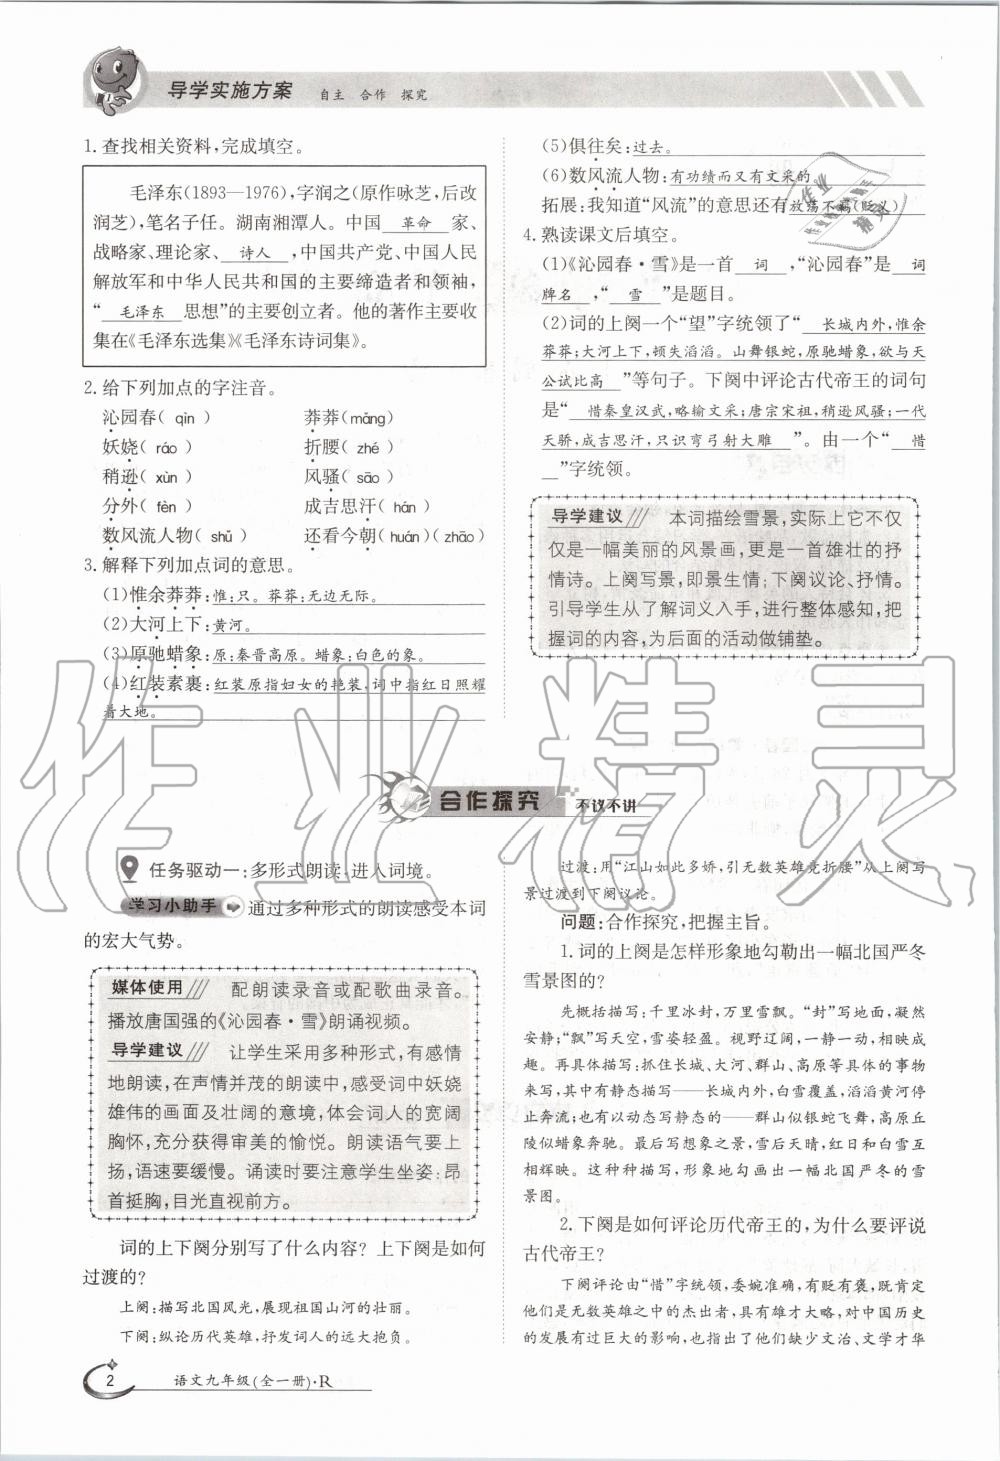 导学实施方案 自主 合作 探究
1. 查找相关资料,完成填空。
毛泽东(1893—1976),字润之(原作咏芝,后改
润芝),笔名子任。湖南湘潭人。中国 革命 家、
战略家、理论家、 诗人 ,中国共产党、中国人民
解放军和中华人民共和国的主要缔造者和领袖,
“ 毛泽东 思想”的主要创立者。他的著作主要收
集在《毛泽东选集》《毛泽东诗词集》。
2. 给下列加点的字注音。
沁园春( qìn ) 莽莽(mǎng)
妖娆( ráo ) 折腰( zhé )
稍逊( xùn ) 风骚( sāo )
分外( fèn ) 成吉思汗( hán )
数风流人物( shǔ ) 还看今朝(huán)(zhāo)
3. 解释下列加点词的意思。
(1)惟余莽莽:惟:只。莽莽:无边无际。
(2)大河上下:黄河。
(3)原驰蜡象:原:秦晋高原。蜡象:白色的象。
(4)红装素裹:红装原指妇女的艳装,词中指红日照耀
着大地。
(5)俱往矣:过去。
(6)数风流人物:有功绩而又有文采的
拓展:我知道“风流”的意思还有放荡不羁(贬义)
4. 熟读课文后填空。
(1)《沁园春·雪》是一首 词 ,“沁园春”是 词
牌名 ,“ 雪 ”是题目。
(2)词的上阕一个“望”字统领了“ 长城内外,惟余
莽莽;大河上下,顿失滔滔。山舞银蛇,原驰蜡象,欲与天
公试比高 ”等句子。下阕中评论古代帝王的词句
是“ 惜秦皇汉武,略输文采;唐宗宋祖,稍逊风骚;一代
天骄,成吉思汗,只识弯弓射大雕 ”。由一个“ 惜
”字统领。
导学建议 本词描绘雪景,实际上它不仅
仅是一幅美丽的风景画,更是一首雄壮的抒
情诗。上阕写景,即景生情;下阕议论、抒情。
引导学生从了解词义入手,进行整体感知,把
握词的内容,为后面的活动做铺垫。
合作探究 不议不讲
任务驱动一:多形式朗读,进入词境。
学习小助手 通过多种形式的朗读感受本词
的宏大气势。
媒体使用 配朗读录音或配歌曲录音。
播放唐国强的《沁园春·雪》朗诵视频。
导学建议 让学生采用多种形式,有感情
地朗读,在声情并茂的朗读中,感受词中妖娆
雄伟的画面及壮阔的意境,体会词人的宽阔
胸怀,充分获得审美的愉悦。朗读语气要上
扬,语速要缓慢。诵读时要注意学生坐姿:昂
首挺胸,目光直视前方。
词的上下阕分别写了什么内容?上下阕是如何
过渡的?
上阕:描写北国风光,展现祖国山河的壮丽。
下阕:纵论历代英雄,抒发词人的远大抱负。
过渡:用“江山如此多娇,引无数英雄竞折腰”从上阕写
景过渡到下阕议论。
问题:合作探究,把握主旨。
1. 词的上阕是怎样形象地勾勒出一幅北国严冬
雪景图的?
先概括描写:千里冰封,万里雪飘。“封”写地面,凝然
安静;“飘”写天空,雪姿轻盈。视野辽阔,一静一动,相映成
趣。再具体描写:抓住长城、大河、群山、高原等具体的事物
来写,其中有静态描写——长城内外,白雪覆盖,滔滔黄河停
止奔流;也有以动态写静态的——群山似银蛇飞舞,高原丘
陵似蜡象奔驰。最后写想象之景,雪后天晴,红日和白雪互
相辉映。这种种描写,形象地勾画出一幅北国严冬的雪
景图。
2. 下阕是如何评论历代帝王的,为什么要评说
古代帝王?
下阕评论由“惜”字统领,委婉准确,有贬有褒,既肯定
他们是无数英雄之中的杰出者,具有雄才大略,对中国历史
的发展有过巨大的影响,也指出了他们缺少文治、文学才华
2 语文九年级(全一册)·R
作业精灵
作业
精灵